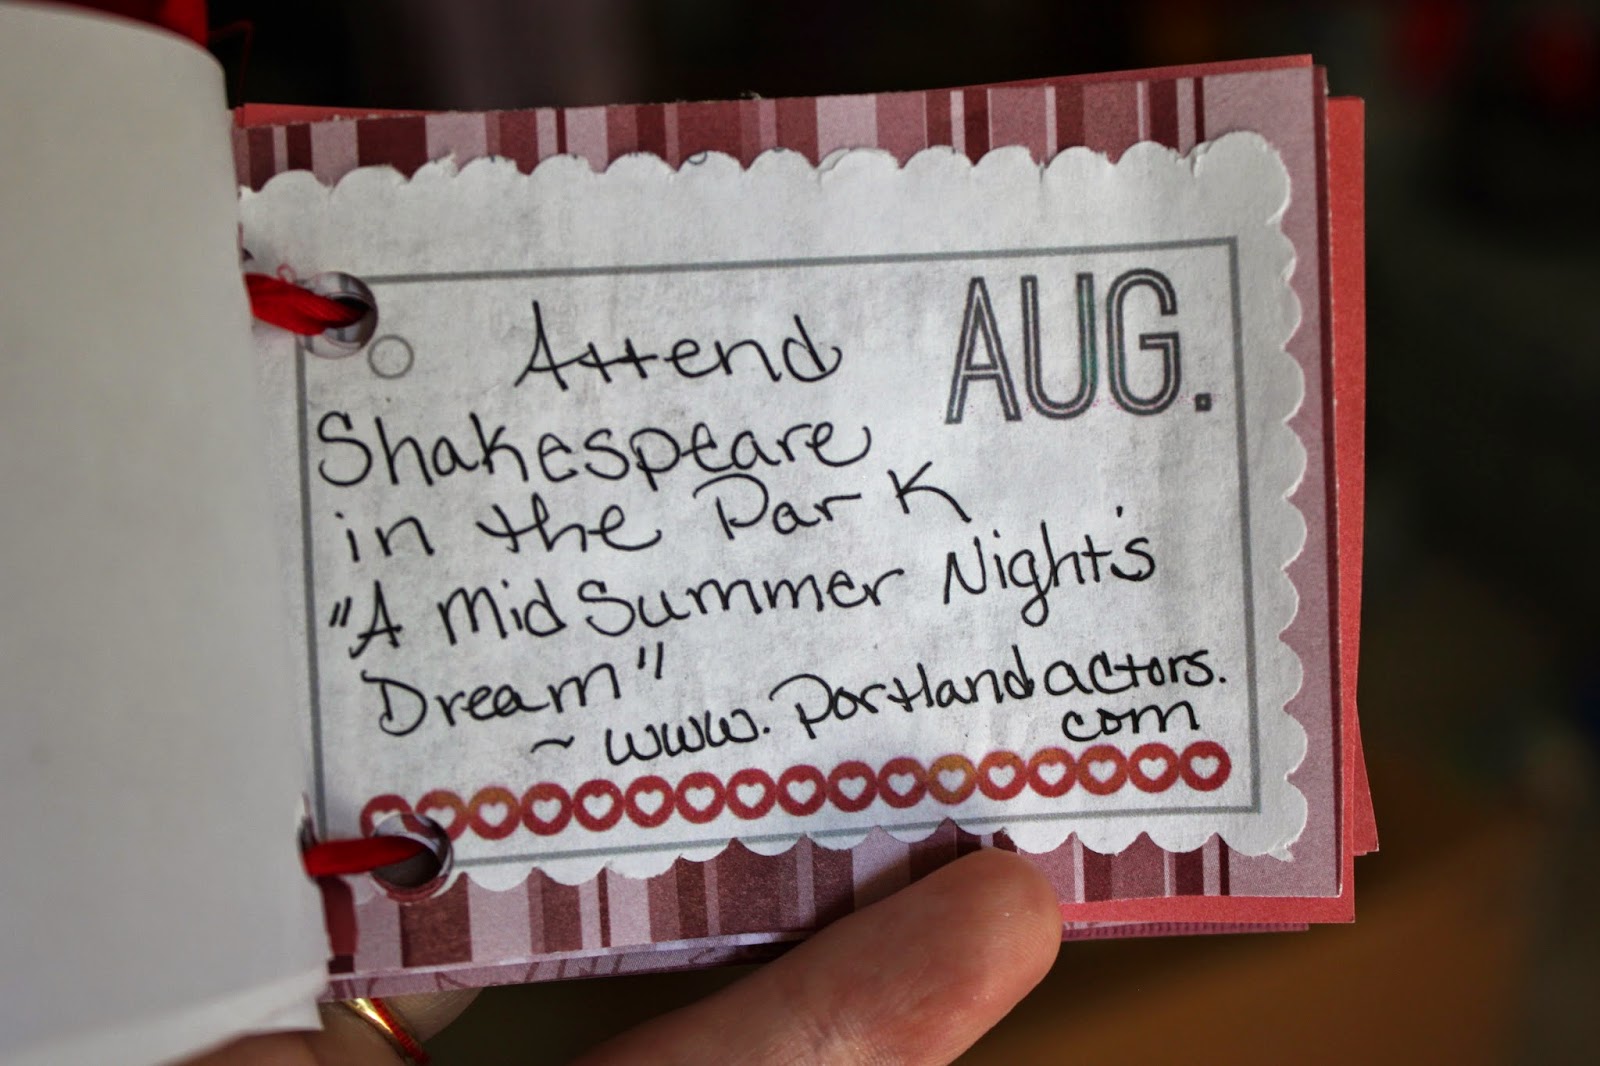 AUG.
Attend
Shakespeare
in the Park
"A Midsummer Night's
Dream"
~ www.Portlandactors.
com